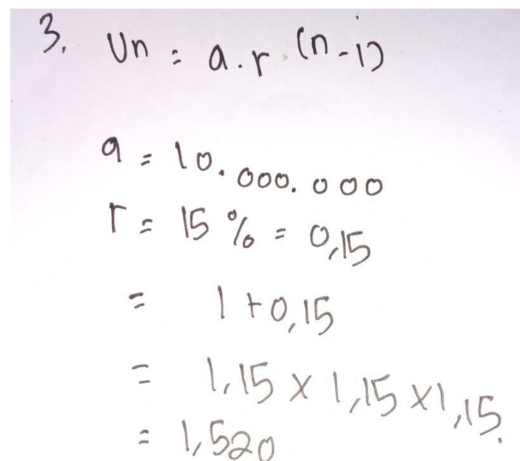 3. Un = a.r.(n-1)
a = 10.000.000
r = 15 % = 0,15
= 1 + 0,15
= 1,15 x 1,15 x 1,15.
= 1,520